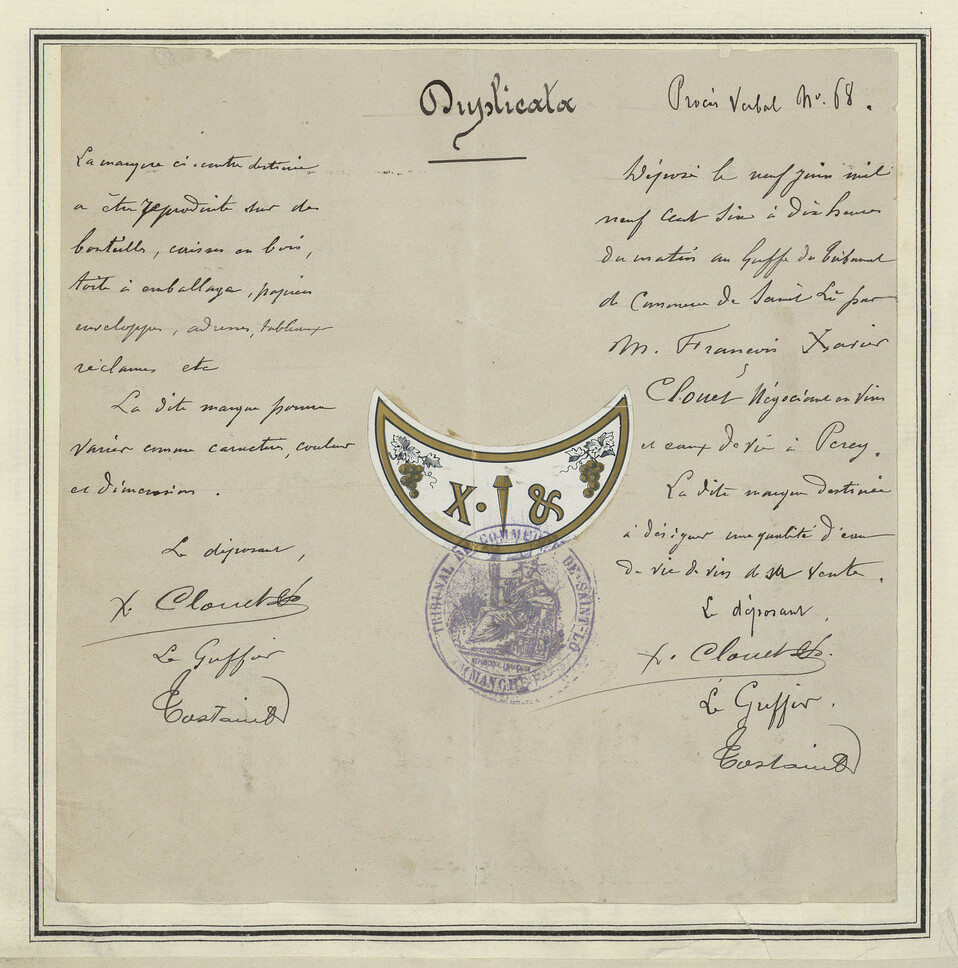 Duplicata
Procès Verbal No. 68.
La marque ci-contre destinée
a être reproduite sur des
bouteilles, caisses en bois,
toile à emballage, papiers
enveloppes, adresses, tableaux
réclames etc
La dite marque pouvant
varier comme caractères, couleur
et dimension.
Le déposant,
X. Clouet
Le Greffier
Tostain
Déposé le neuf juin mil
neuf cent six à dix heures
du matin au Greffe du Tribunal
de Commerce de Saint Lô par
M. François Xavier
Clouet, Négociant en Vins
et eaux de vie à Percy.
La dite marque destinée
à désigner une qualité d'eau
de vie de vins de sa vente.
Le déposant,
X. Clouet
Le Greffier.
Tostain
X. &
TRIBUNAL DE COMMERCE DE SAINT-LO
RÉPUBLIQUE FRANÇAISE
MANCHE